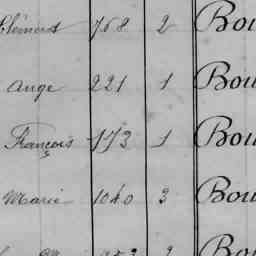 Clément 768 2 Bou
Ange 221 1 Bou
François 773 1 Bou
Marie 1040 3 Bou
Bou